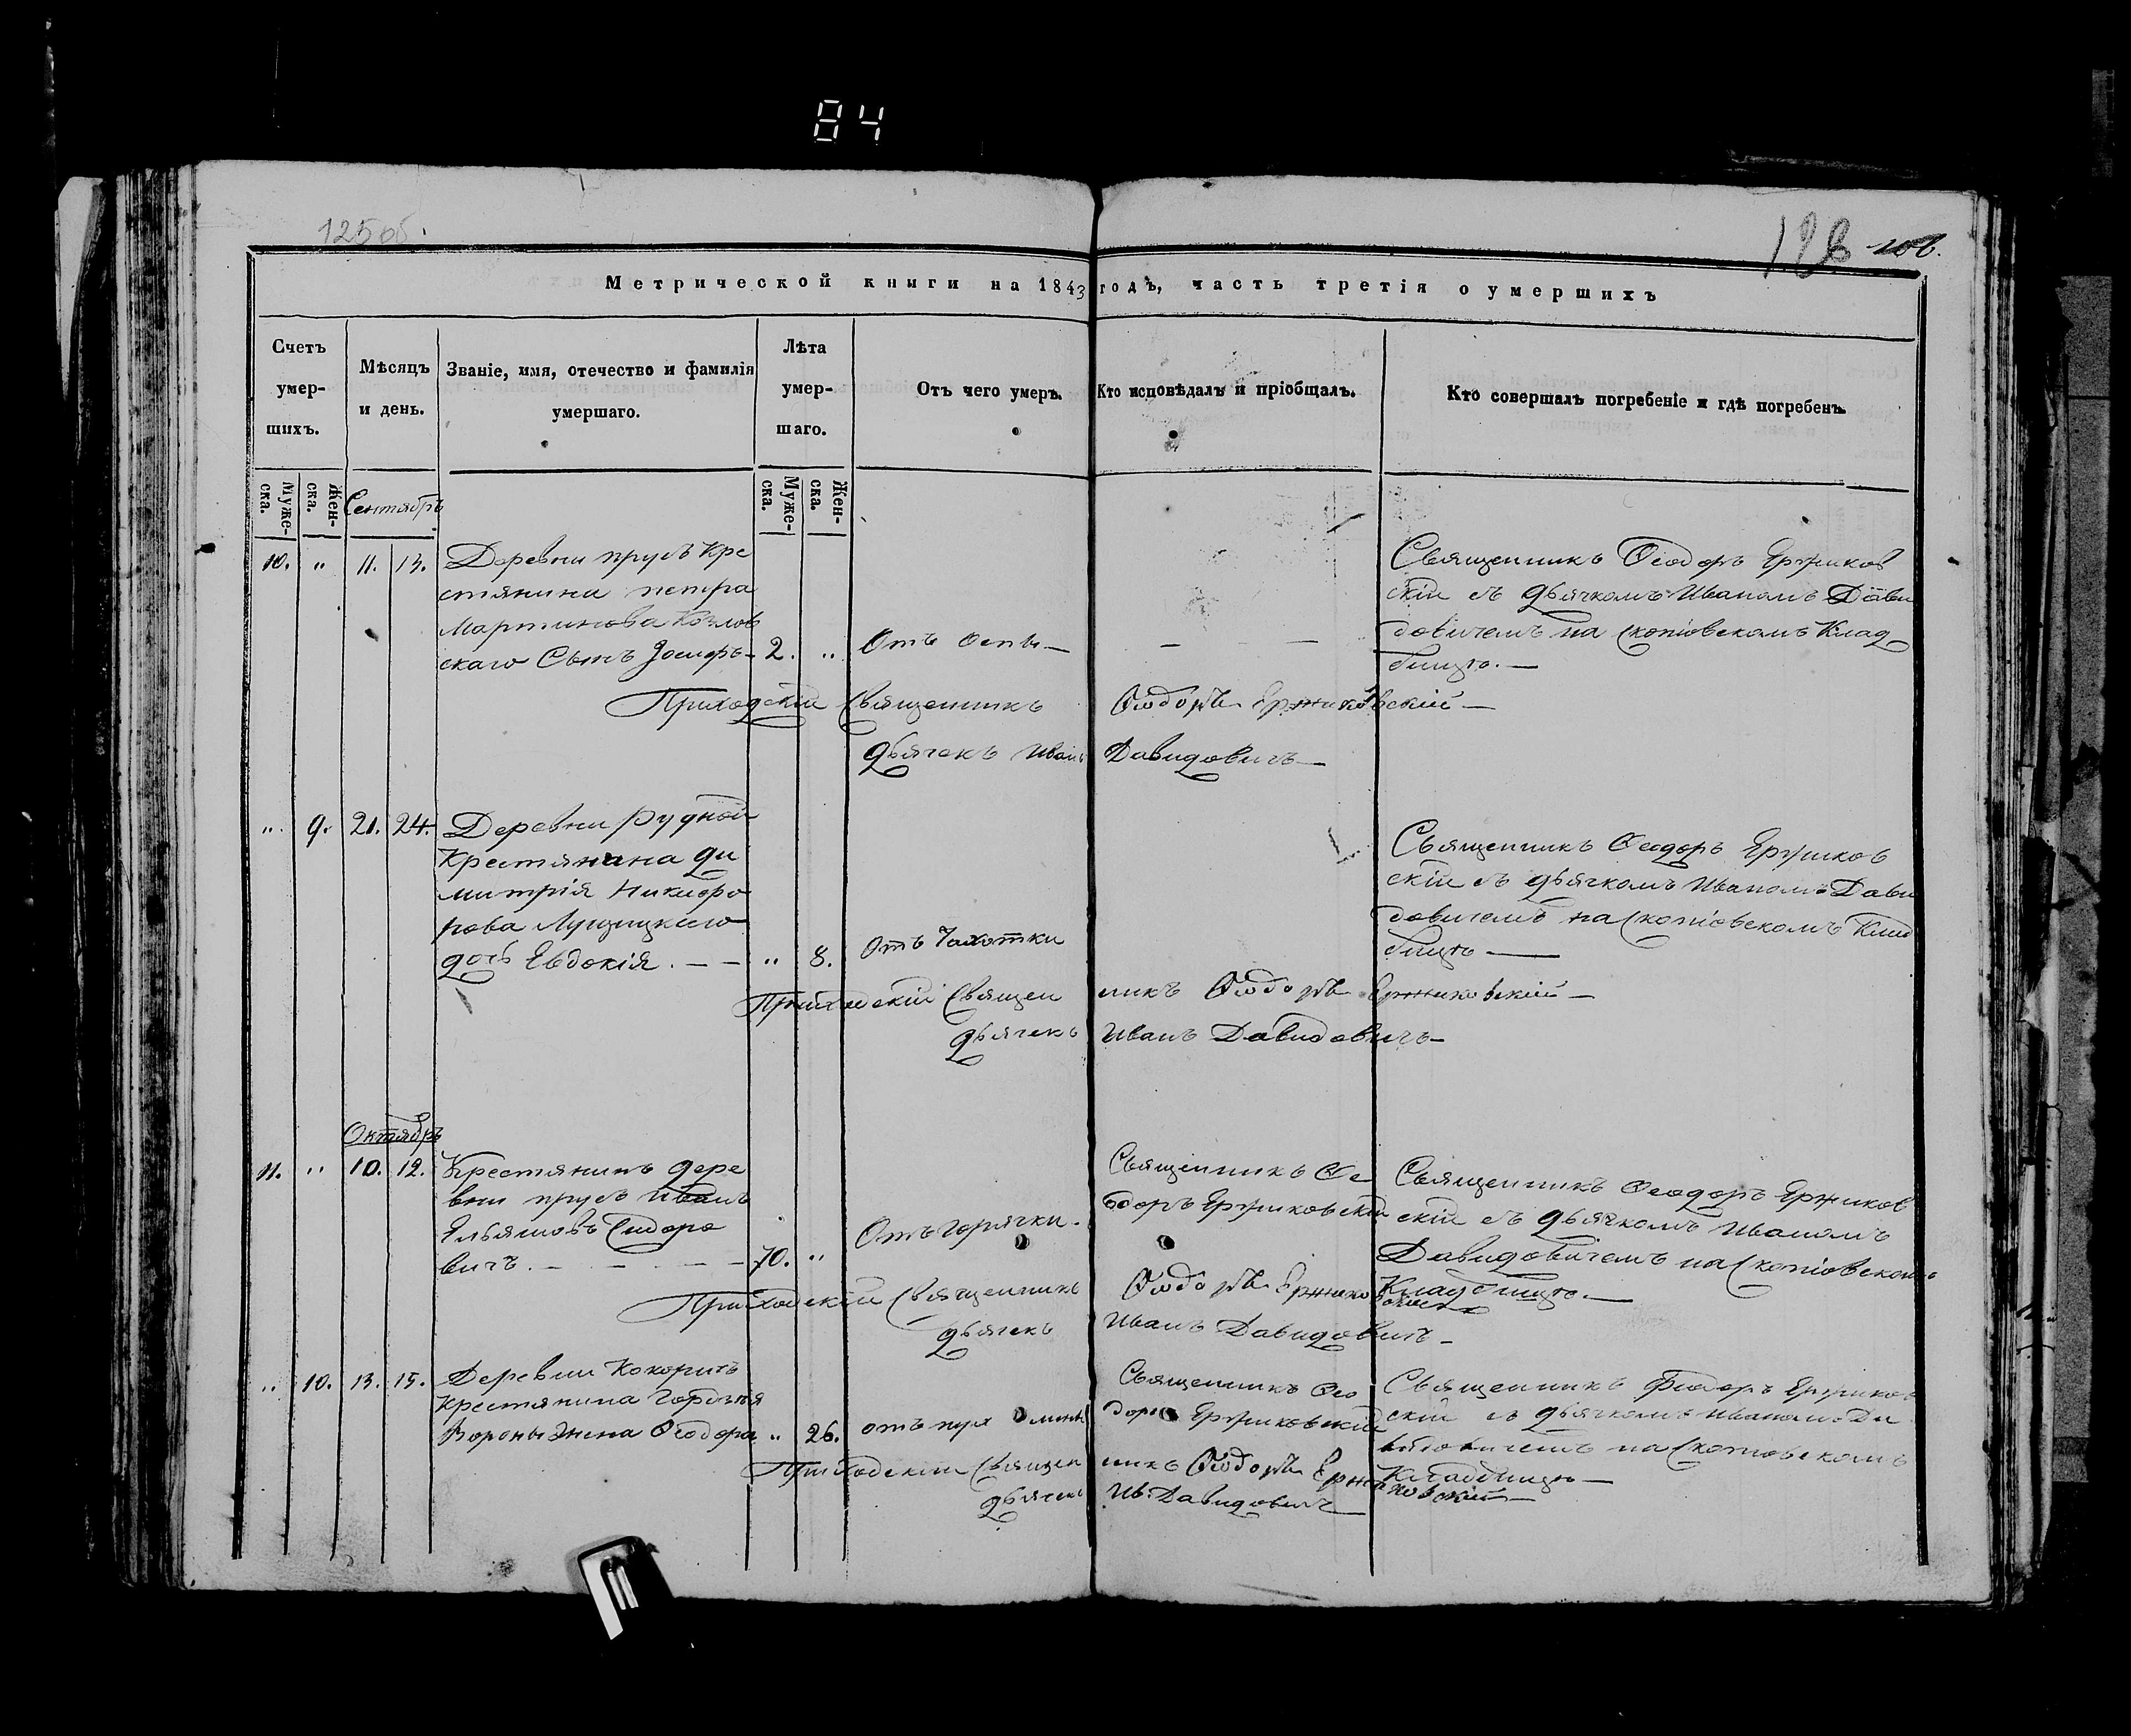 84
125 об.
128
106.
Метрической книги на 1843 годъ, часть третія о умершихъ
Счетъ умер-шихъ.
Мѣсяцъ и день.
Званіе, имя, отечество и фамилія умершаго.
Лѣта умер-шаго.
Отъ чего умеръ.
Кто исповѣдалъ и пріобщалъ.
Кто совершалъ погребеніе и гдѣ погребенъ.
Муже-ска.
Жен-ска.
Сентябрь
Муже-ска.
Жен-ска.
10. " 11. 13.
Деревни прусъ Кре
стянина петра
Мартинова Козлов
скаго Сынъ Іосифъ - 2. "
Отъ оспы —
Священникъ Ѳеодоръ Ержиков
скій съ дьячкомъ Иваномъ Дави
довичемъ на Скопіовскомъ Клад
бищѣ. —
Приходскій Священникъ Ѳеодоръ Ержиковскій —
дьячекъ Иванъ Давидовичъ —
" 9. 21. 24.
Деревни Рудной
Крестянина ди
митрія Никифо
рова Лущицкаго
дочь Евдокія. — — " 8.
Отъ Чахотки
Священникъ Ѳеодоръ Ержиков
скій съ дьячкомъ Иваномъ Дави
довичемъ на Скопіовскомъ Клад
бищѣ —
Приходскій Священникъ Ѳеодоръ Ержиковскій —
дьячекъ Иванъ Давидовичъ —
Октябрь
11. " 10. 12.
Крестянинъ дере
вни прусъ Иванъ
Ельяновъ Сидоро
вичъ. — — — 70. "
Отъ горячки.
Священникъ Ѳе
одоръ Ержиковскій
Священникъ Ѳеодоръ Ержиков
скій съ дьячкомъ Иваномъ
Давидовичемъ на Скопіовскомъ
Кладбищѣ. —
Приходскій Священникъ Ѳеодоръ Ержиковскій
дьячекъ Иванъ Давидовичъ —
" 10. 13. 15.
Деревни Кокоричъ
Крестянина Гордѣя
Вороны жена Ѳеодора " 26.
Священникъ Ѳео
доръ Ержиковскій
Священникъ Ѳеодоръ Ержиков
скій съ дьячкомъ Иваномъ Да
видовичемъ на Скопіовскомъ
Кладбищѣ —
Приходскій Священникъ Ѳеодоръ Ержиковскій —
дьячекъ Ив: Давидовичъ